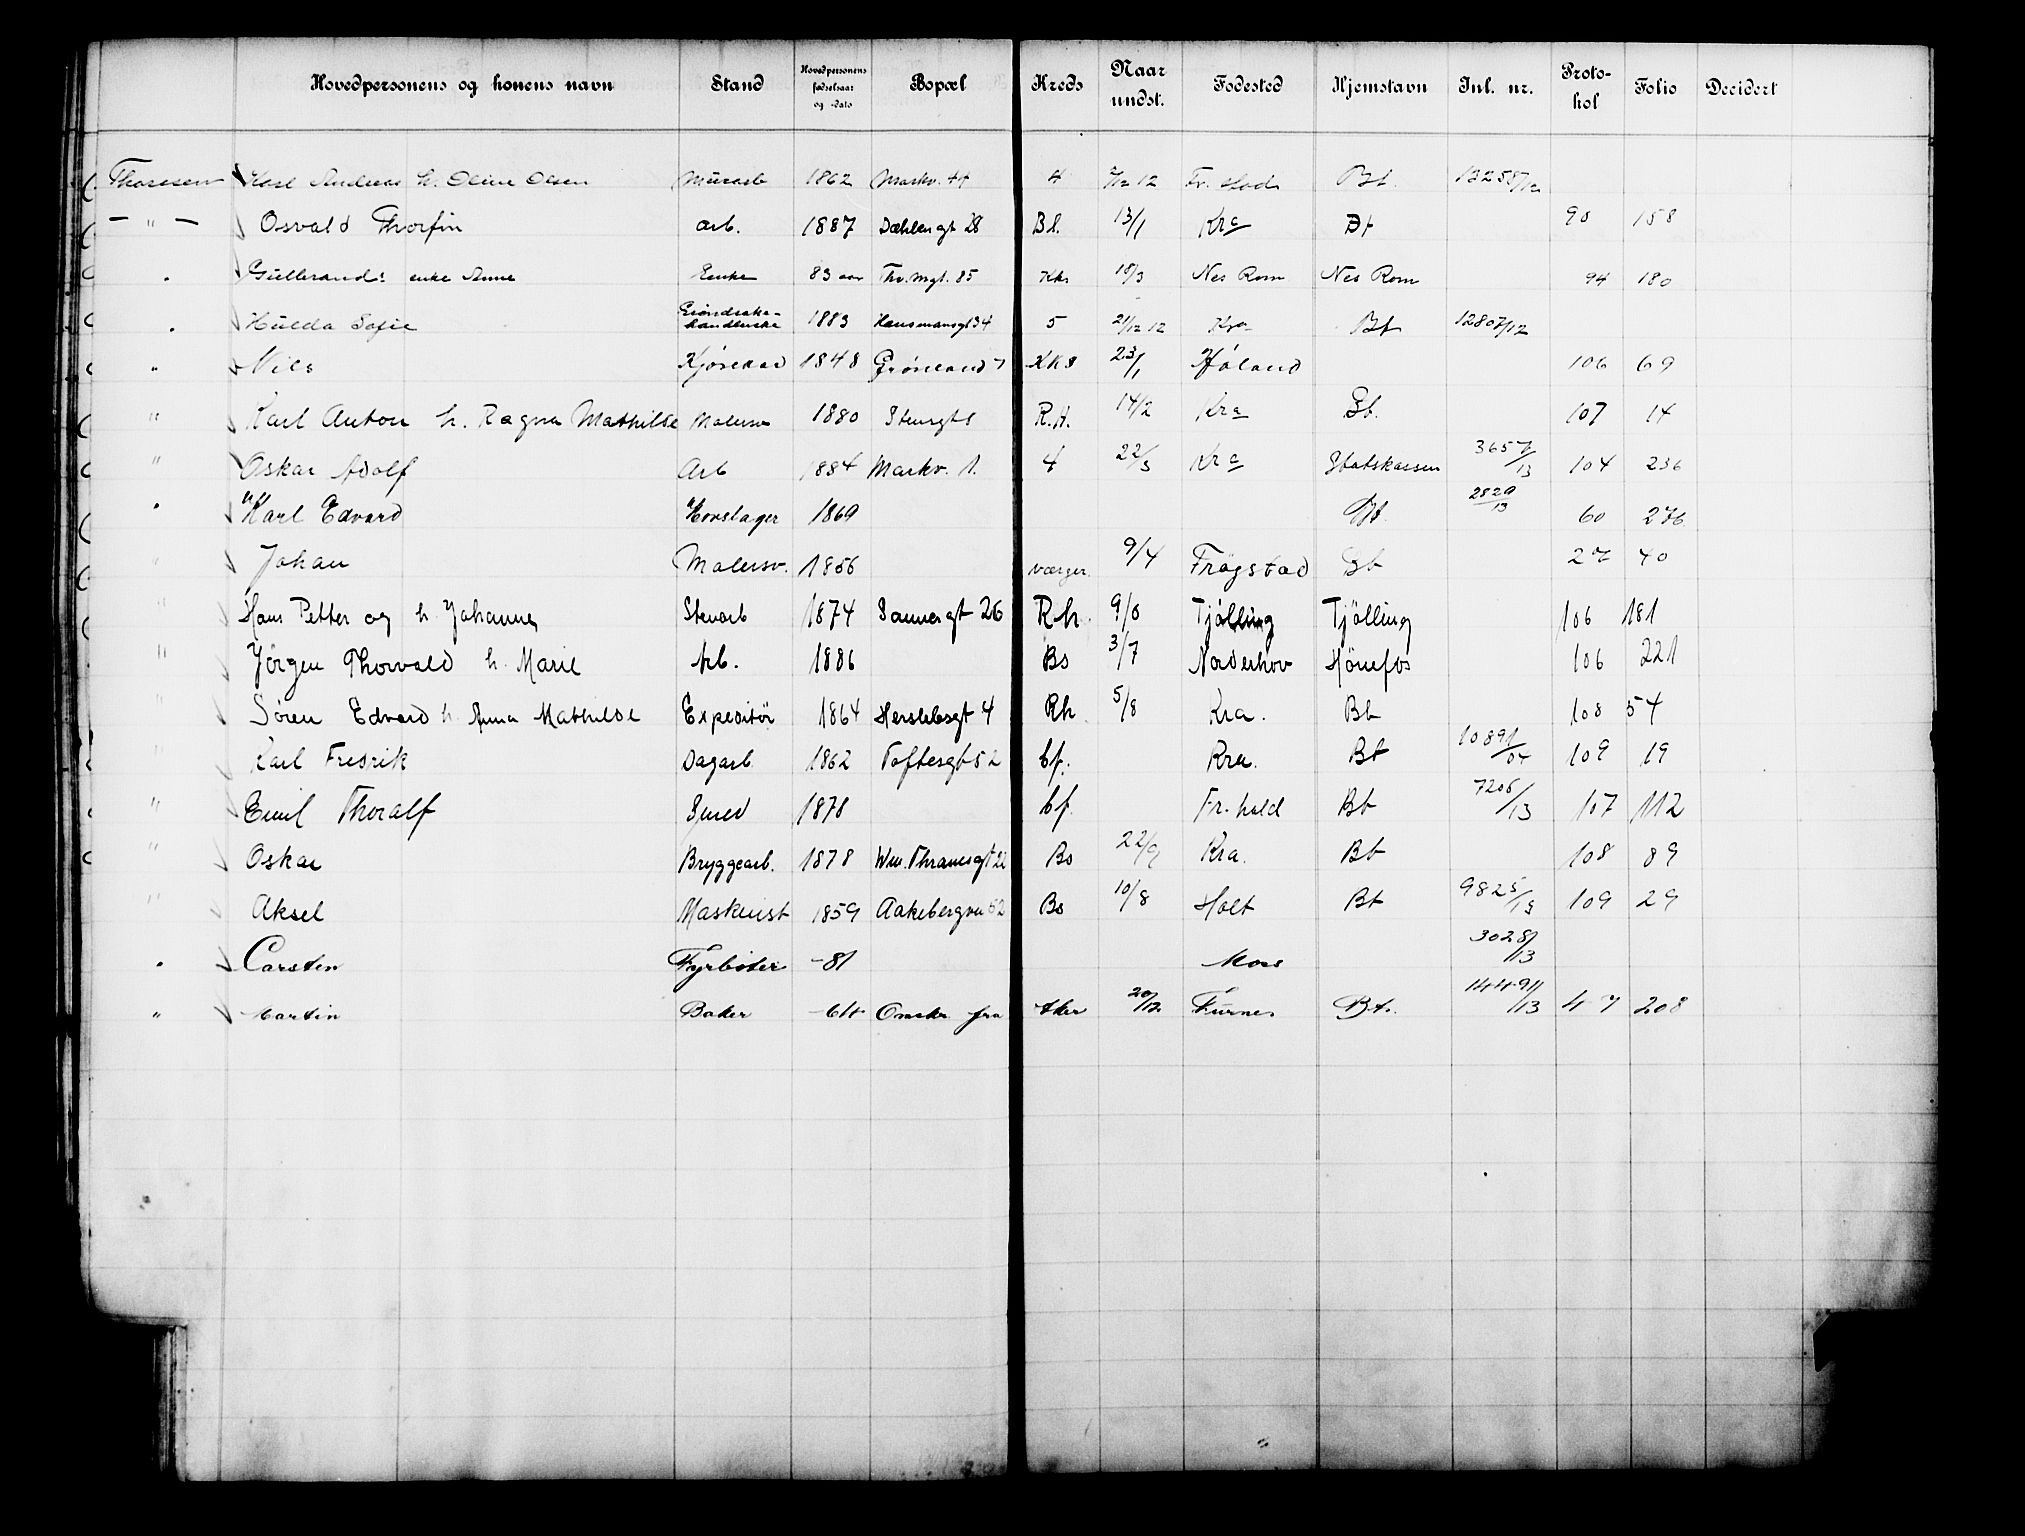 Hovedpersonens og konens navn Stand Hovedpersonens fødselsaar og -dato Bopæl Kreds Naar undst. Fødested Hjemstavn Inl. nr. Protokol Folio Decidert
Thoresen Karl Andreas h. Oline Olsen Murarb 1862 Markv. 44 4 12 Fr. stad Bt. 13258/12
— " — Osvald Thorfin Arb. 1887 Dæhlengt 28 Bl. 13/1 Kra Bt 90 158
" Gulbrands enke Anne Enke 83 aar Thv. Mgt. 85 Kks 18/3 Nes Rom Nes Rom 94 180
" Hulda Sofie Grøndsakshandlerske 1883 Hausmansgt 34 5 21/12 12 Kra Bt 12807/12
" Nils Kjørekar 1848 Grønland 7 KKs 23/1 Høland 106 69
" Karl Anton h. Ragna Mathilde Malersv 1880 Stensgt 8 R.H. 14/2 Kra Bt. 107 14
" Oskar Adolf Arb 1884 Markv. 1. 4 22/3 Kra Statskassen 3657/13 104 236
" Karl Edvard Hovslager 1869 Bt 2829/13 60 276
" Johan Malersv. 1856 værger 9/4 Frøgstad Bt 27 40
" Hans Petter og h. Johanne Stenarb 1874 Sannergt 26 R.h. 9/6 Tjølling Tjølling 106 181
" Jørgen Thorvald h. Marie Arb. 1886 Bs 3/7 Norderhov Hönefos 106 221
" Søren Edvard h. Anna Mathilde Expeditør 1864 Herslebsgt 4 Rh. 5/8 Kra. Bt 108 54
" Karl Fredrik Dagarb 1862 Toftesgt 52 bf. Kra. Bt 10891/04 109 19
" Emil Thoralf Smed 1878 bf Fr. hald Bt 7206/13 107 112
" Oskar Bryggearb. 1878 Wm. Thranesgt 22 Bs 22/9 Kra. Bt 108 89
" Aksel Maskinist 1859 Aakebergvn 52 Bs 10/8 Holt Bt 9825/13 109 29
" Carsten Fyrbøter -81 Moss 3028/13
" Martin Baker -64 Omskr. fra Aker 20/12 Furnes Bt. 14491/13 47 208